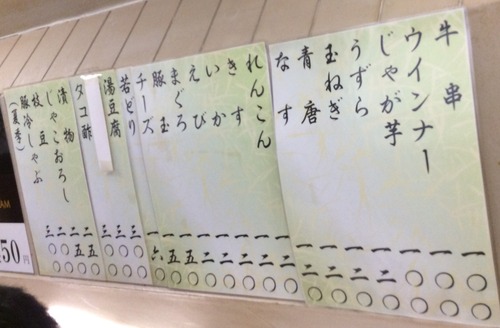 牛串 一〇〇
ウインナー 一〇〇
じゃが芋 一〇〇
うずら 一二〇
玉ねぎ 一二〇
青唐 一二〇
なす 一二〇
れんこん 一二〇
きす 一二〇
いか 一二〇
えび 一二〇
まぐろ 一五〇
豚玉 一五〇
チーズ 一六〇
若どり 三〇〇
湯豆腐 三〇〇
タコ酢 三〇〇
漬物 二五〇
じゃこおろし 二五〇
枝豆 二〇〇
豚冷しゃぶ 三〇〇
(夏季)
50円